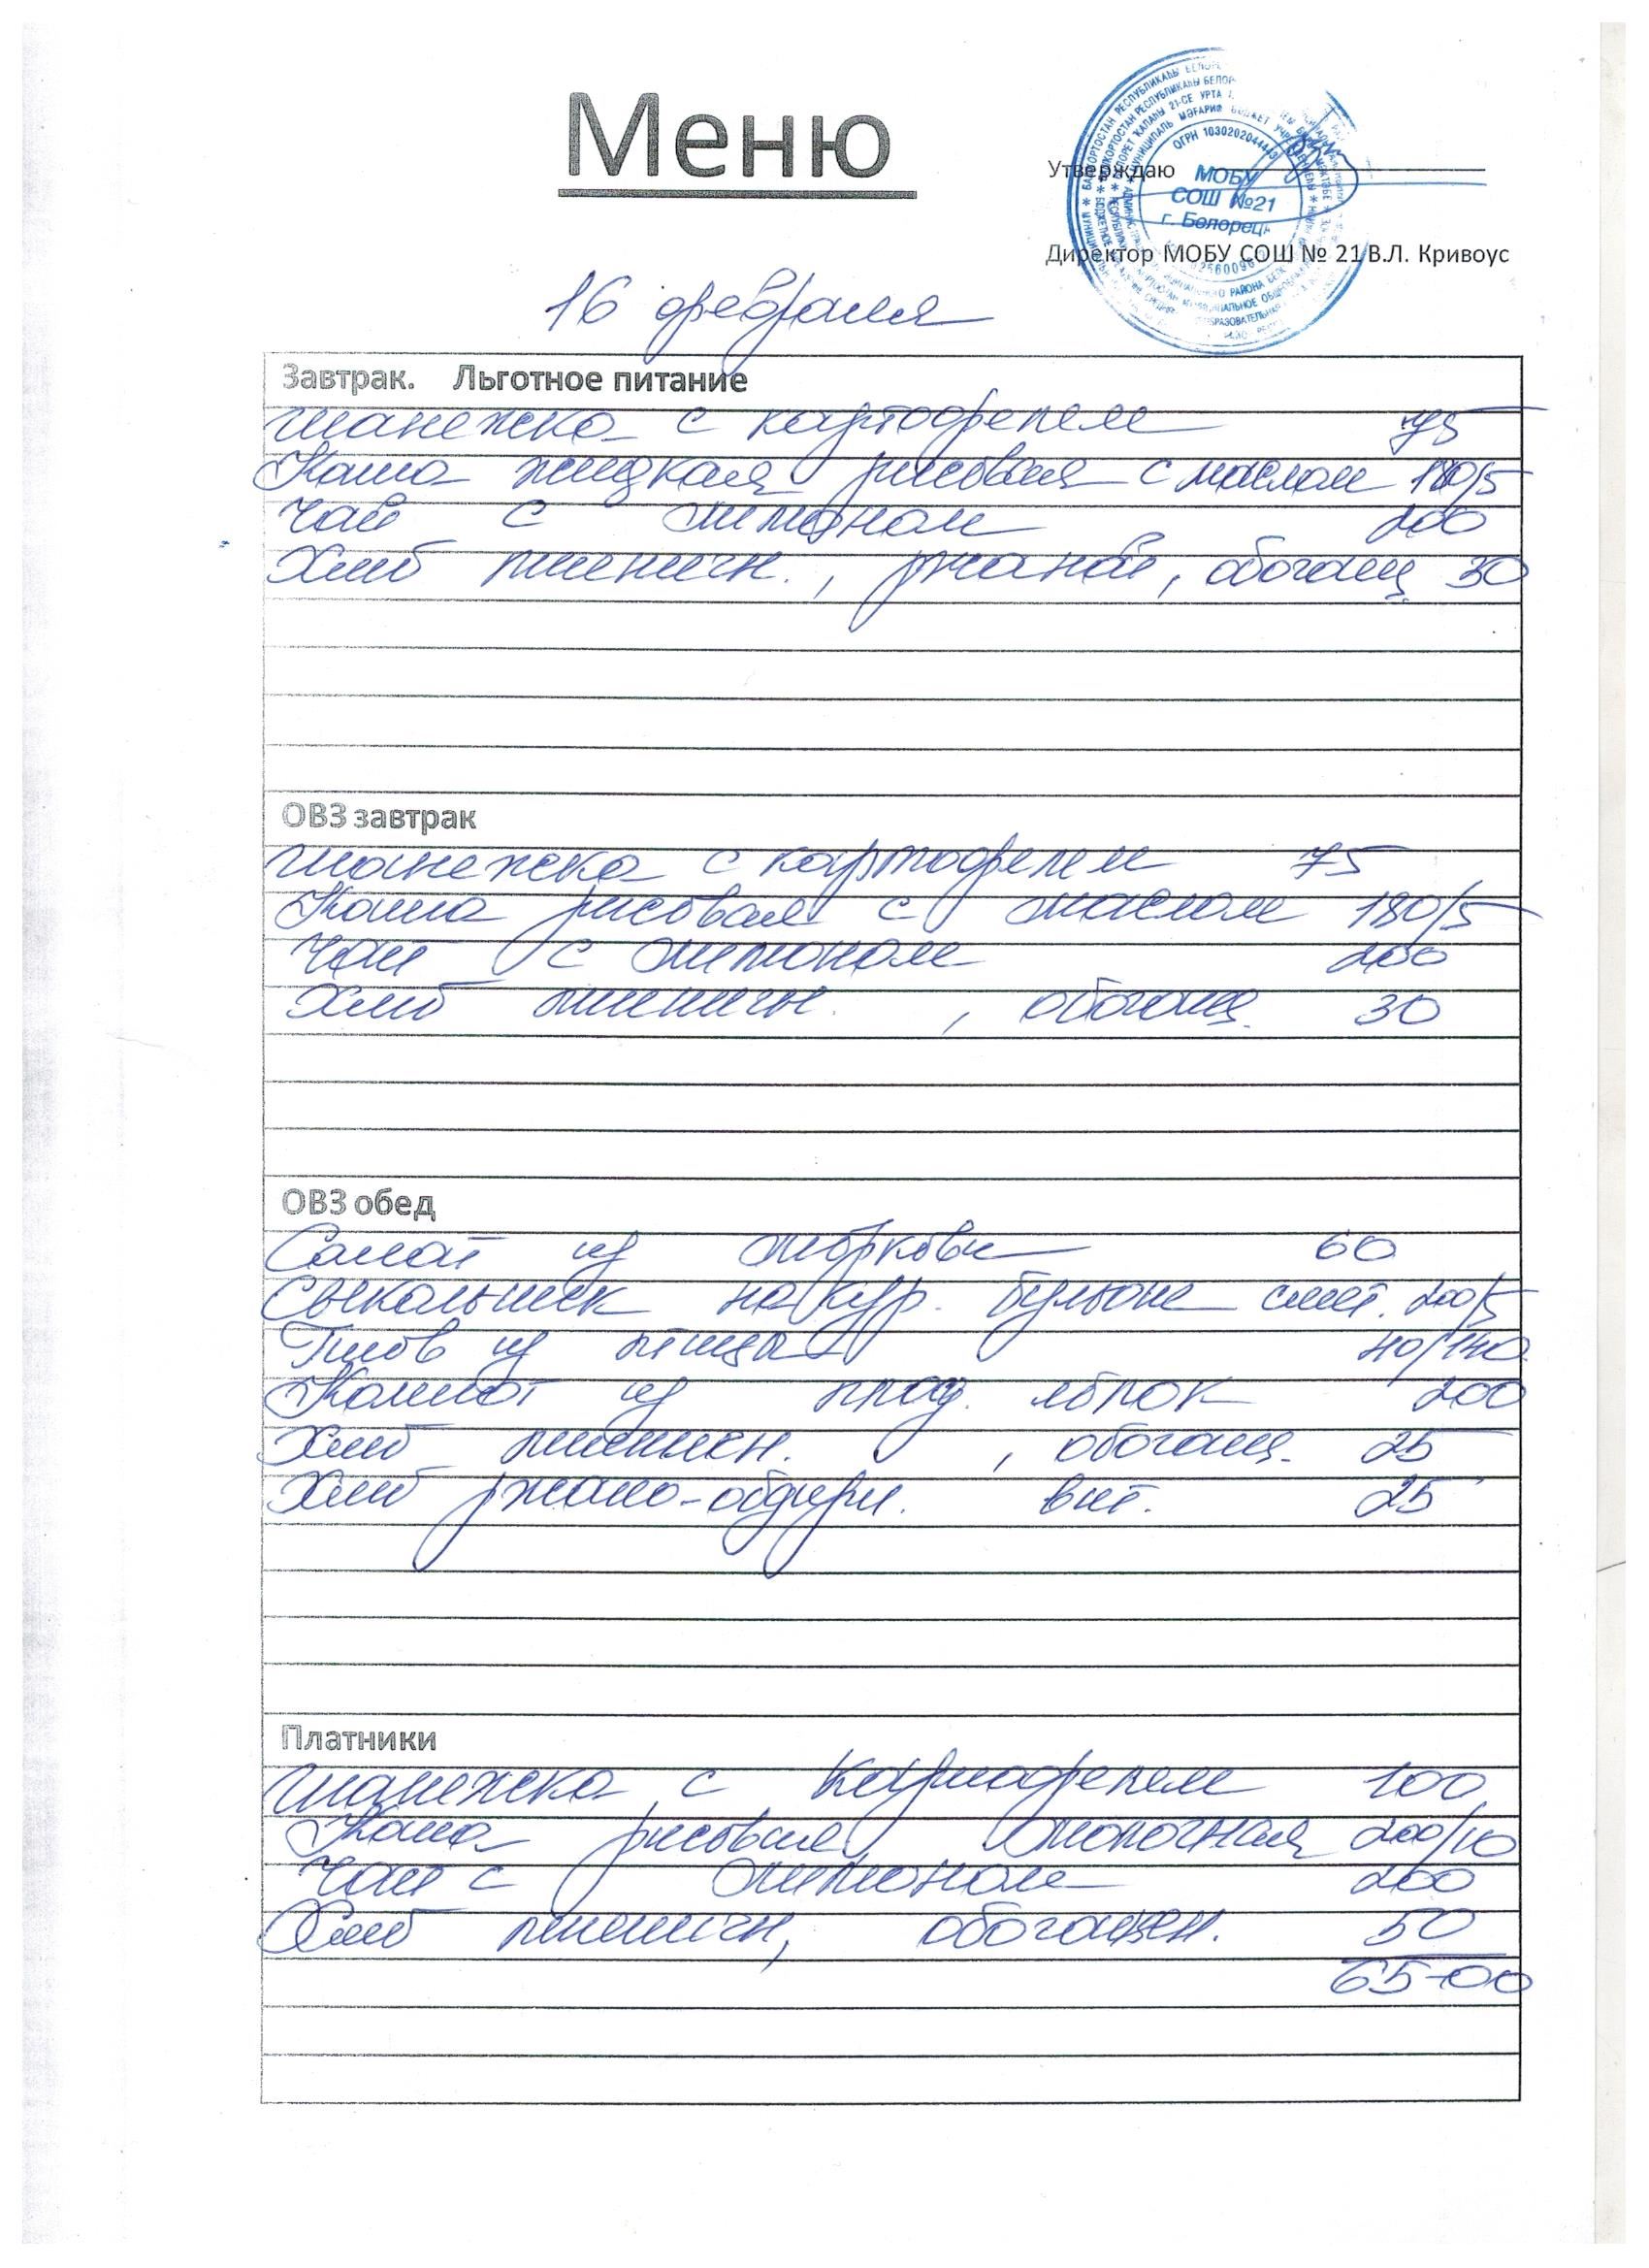 Меню
Утверждаю
МОБУ
СОШ №21
г. Белорецк
ОГРН 1030202044443
Директор МОБУ СОШ № 21 В.Л. Кривоус
16 февраля
Завтрак. Льготное питание
Шанежка с картофелем 75
Каша жидкая рисовая с маслом 180/5
Чай с лимоном 200
Хлеб пшеничн., ржаной, обогащ 30
ОВЗ завтрак
Шанежка с картофелем 75
Каша рисовая с маслом 180/5
Чай с лимоном 200
Хлеб пшеничн. , обогащ. 30
ОВЗ обед
Салат из моркови 60
Свекольник на кур. бульоне смет. 200/5
Плов из птицы 40/140
Компот из плод. яблок 200
Хлеб пшеничн. , обогащ. 25
Хлеб ржано-обдирн. вит. 25
Платники
Шанежка с картофелем 100
Каша рисовая молочная 200/10
Чай с лимоном 200
Хлеб пшеничн, обогащен. 50
65-00